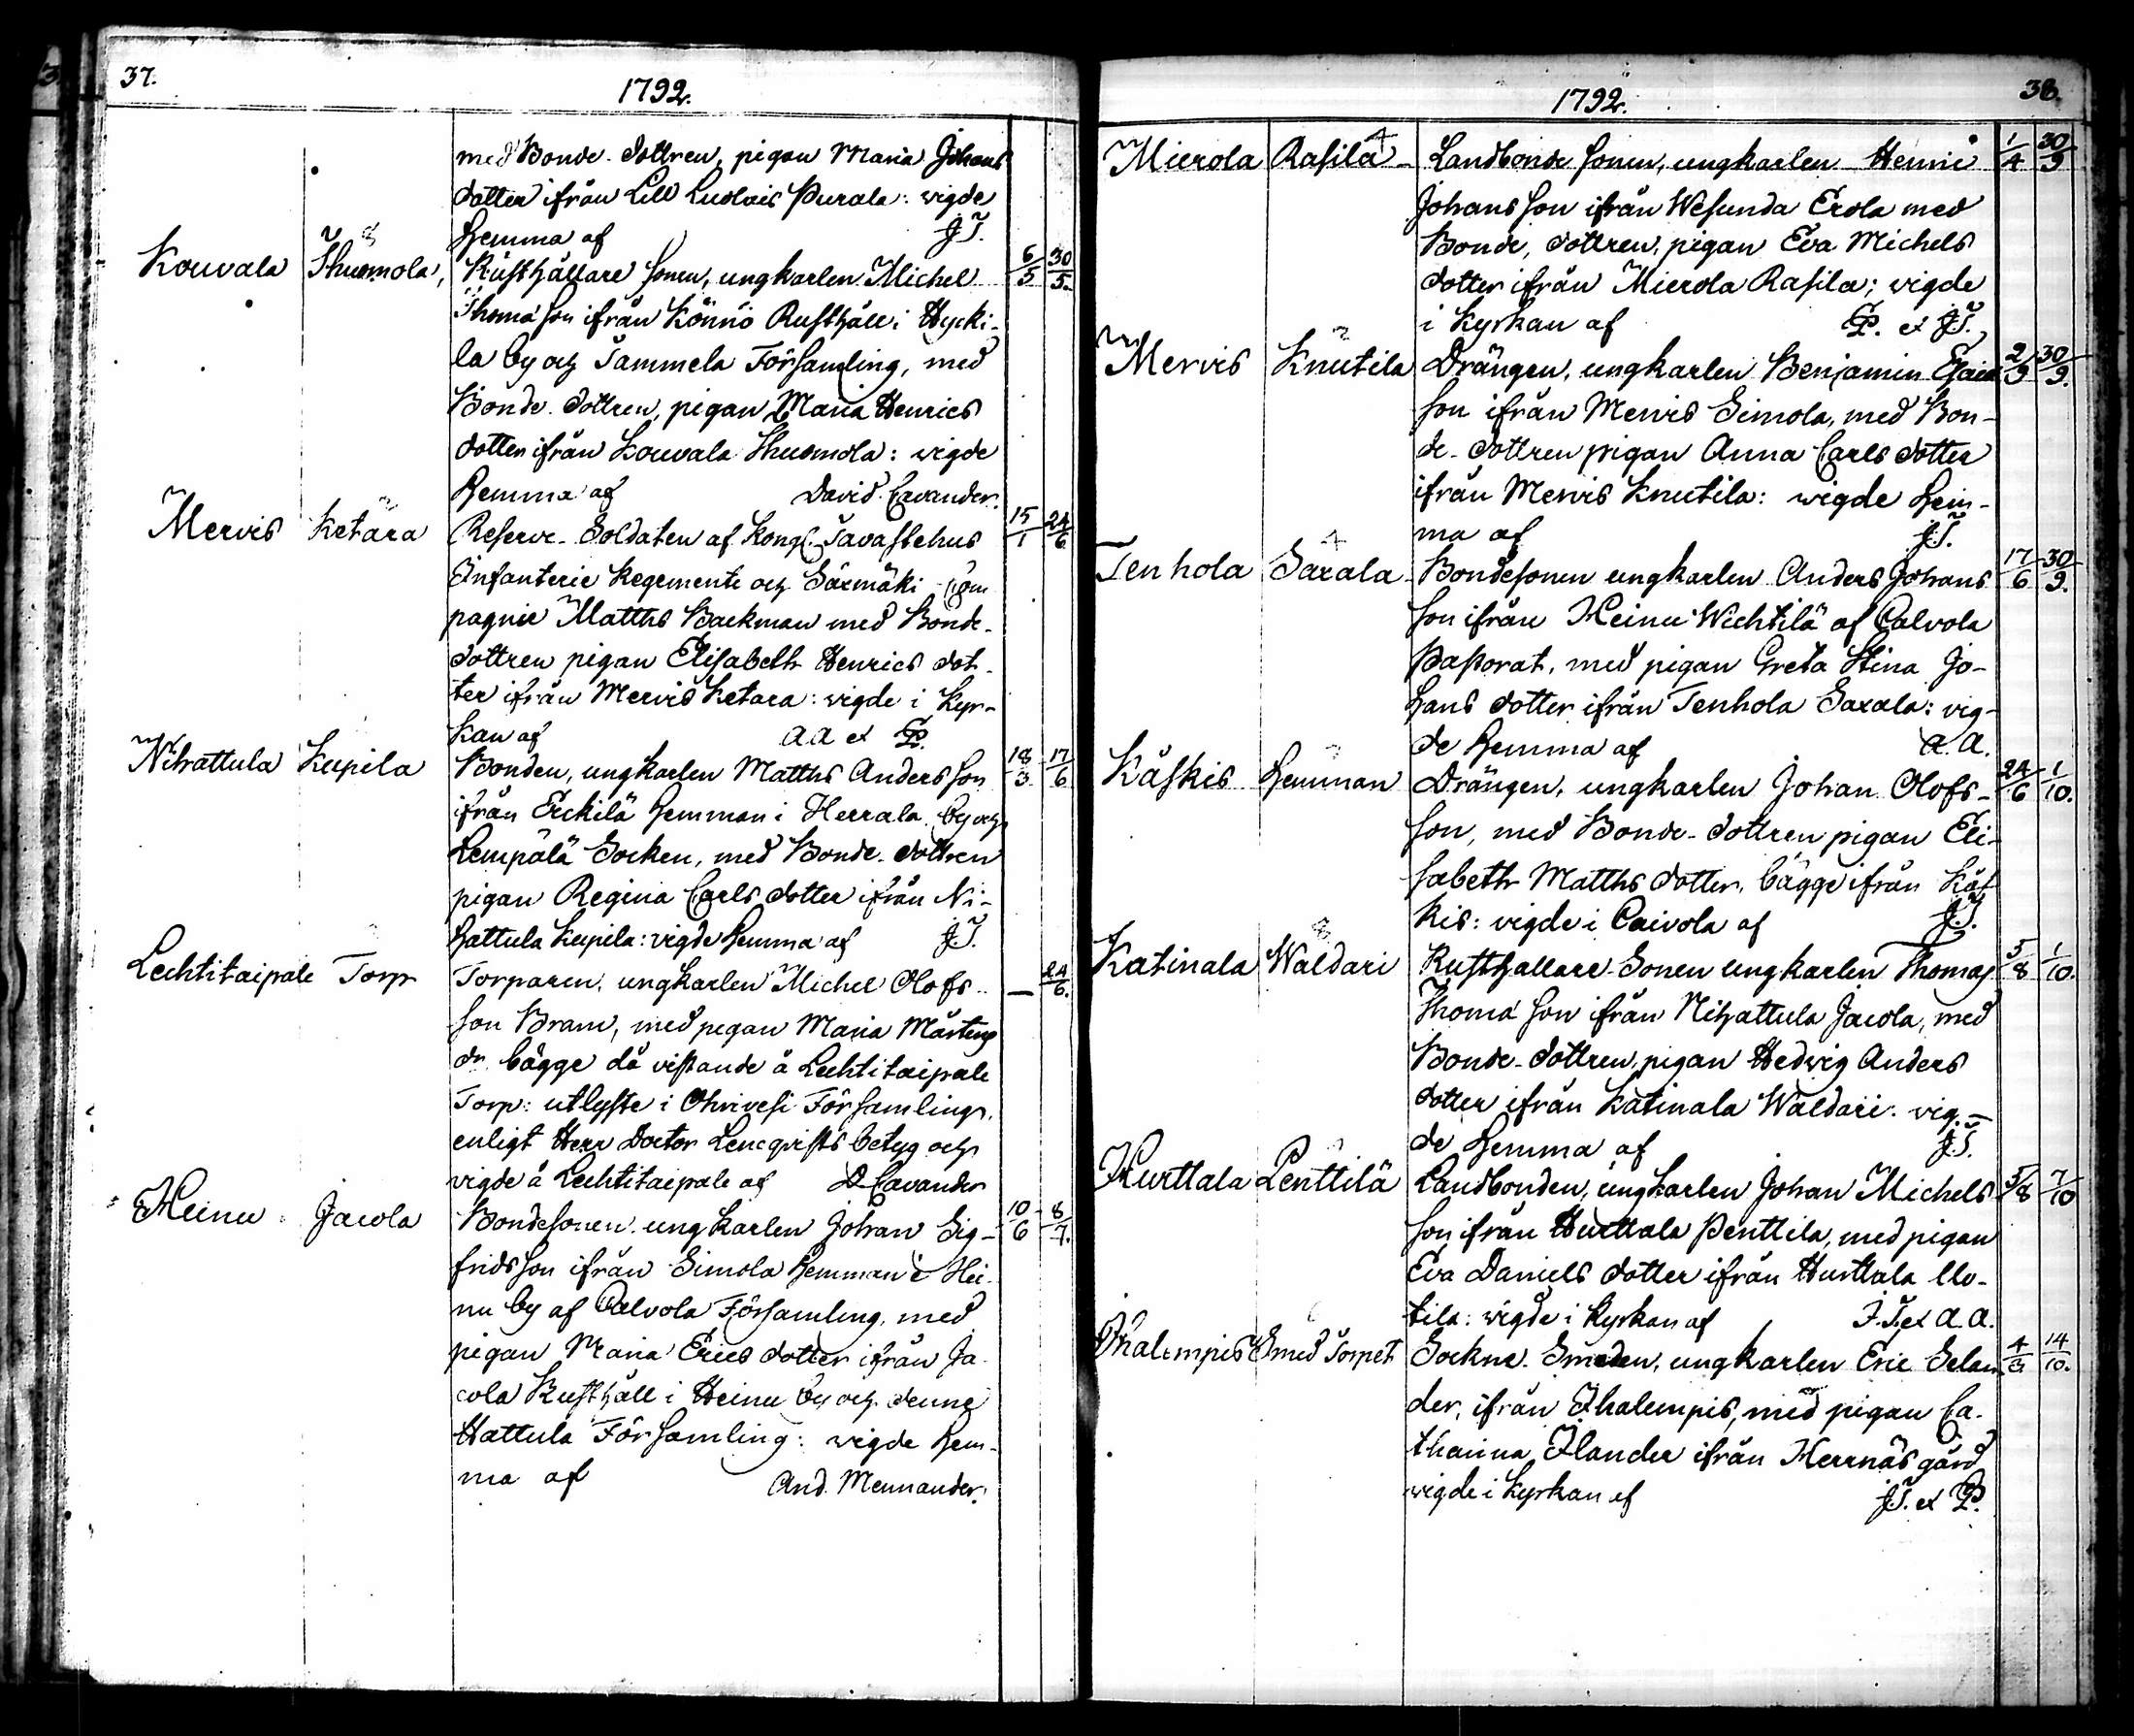 37.
1792.
med Bonde-dottren, pigan Maria Johans
dotter ifrån Lill Luolais Purala: vigde
hemma af J.T.
Kouvala Thuomola, Rusthållare sonen, ungkarlen Michel 6/5 30/5.
Thoma son ifrån Könnö Rusthåll i Hycki-
la by och Tammela Församling, med
Bonde-dottren, pigan Maria Henrics
dotter ifrån Kouvala Thuomola: vigde
hemma af David Cavander.
Mervis Ketara Reserve-Soldaten af Kongl. Tavastehus 15/1 24/6
Infanterie Regemente och Säxmäki Com
pagnie Matths Backman med Bonde-
dottren pigan Elisabeth Henrics dot-
ter ifrån Mervis Ketara: vigde i Kyr-
kan af AA et P.
Nihattula Kupila Bonden, ungkarlen Matths Anders son 18/3 17/6
ifrån Erckilä hemman i Herrala by och
Lempälä Socken, med Bonde-dottren
pigan Regina Carls dotter ifrån Ni-
hattula Kupila: vigde hemma af J.T.
Lechtitaipale Torp Torparen, ungkarlen Michel Olofs- — 24/6.
son Bram, med pigan Maria Mårtens
dr bägge då vistande å Lechtitaipale
Torp: utlyste i Ohrivesi Församling,
enligt Herr Doctor Lencqvists betyg och
vigde å Lechtitaipale af D Cavander
Heinu Jacola Bondesonen ungkarlen Johan Sig- 10/6 8/7.
frids son ifrån Simola hemman i Hei-
nu by af Calvola Församling, med
pigan Maria Erics dotter ifrån Ja-
cola Rusthåll i Heinu by och denne
Hattula Församling: vigde hem-
ma af And. Mennander.
38.
1792.
Mierola Rasila Landbonde sonen, ungkarlen Henric 1/4 30/9
Johans son ifrån Wesunda Erola med
Bonde, dottren, pigan Eva Michels
dotter ifrån Mierola Rasila; vigde
i Kyrkan af P. et J.T.
Mervis Knutila Drängen, ungkarlen Benjamin Esaia 2/9 30/9.
son ifrån Mervis Simola, med Bon-
de-dottren pigan Anna Carls dotter
ifrån Mervis Knutila: vigde hem-
ma af J.T.
Tenhola Saxala Bondesonen ungkarlen Anders Johans 17/6 30/9.
son ifrån Heinu Wichtilä af Calvola
Pastorat, med pigan Greta Stina Jo-
hans dotter ifrån Tenhola Saxala: vig-
de hemma af A.A.
Käskis hemman Drängen, ungkarlen Johan Olofs- 24/6 1/10.
son, med Bonde-dottren pigan Eli-
sabeth Matths dotter, bägge ifrån Käs
kis: vigde i Paivola af J.T.
Katinala Waldari Rusthållare-Sonen ungkarlen Thomas 5/8 1/10.
Thoma son ifrån Nihattula Jacola, med
Bonde-dottren, pigan Hedwig Anders
dotter ifrån Katinala Waldari: vig-
de hemma af J.T.
Hurttala Penttilä Landbonden, ungkarlen Johan Michels 5/8 7/10
son ifrån Hurttala Penttila, med pigan
Eva Daniels dotter ifrån Hurttala Uo-
tila: vigde i Kyrkan af J.T. et A.A.
Ihalempis Smed Torpet Sockne-Smeden, ungkarlen Eric Selan 4/3 14/10.
der, ifrån Ihalempis, med pigan Ca-
tharina Ilander ifrån Herrnäs gård
vigde i Kyrkan af J.T. et P.